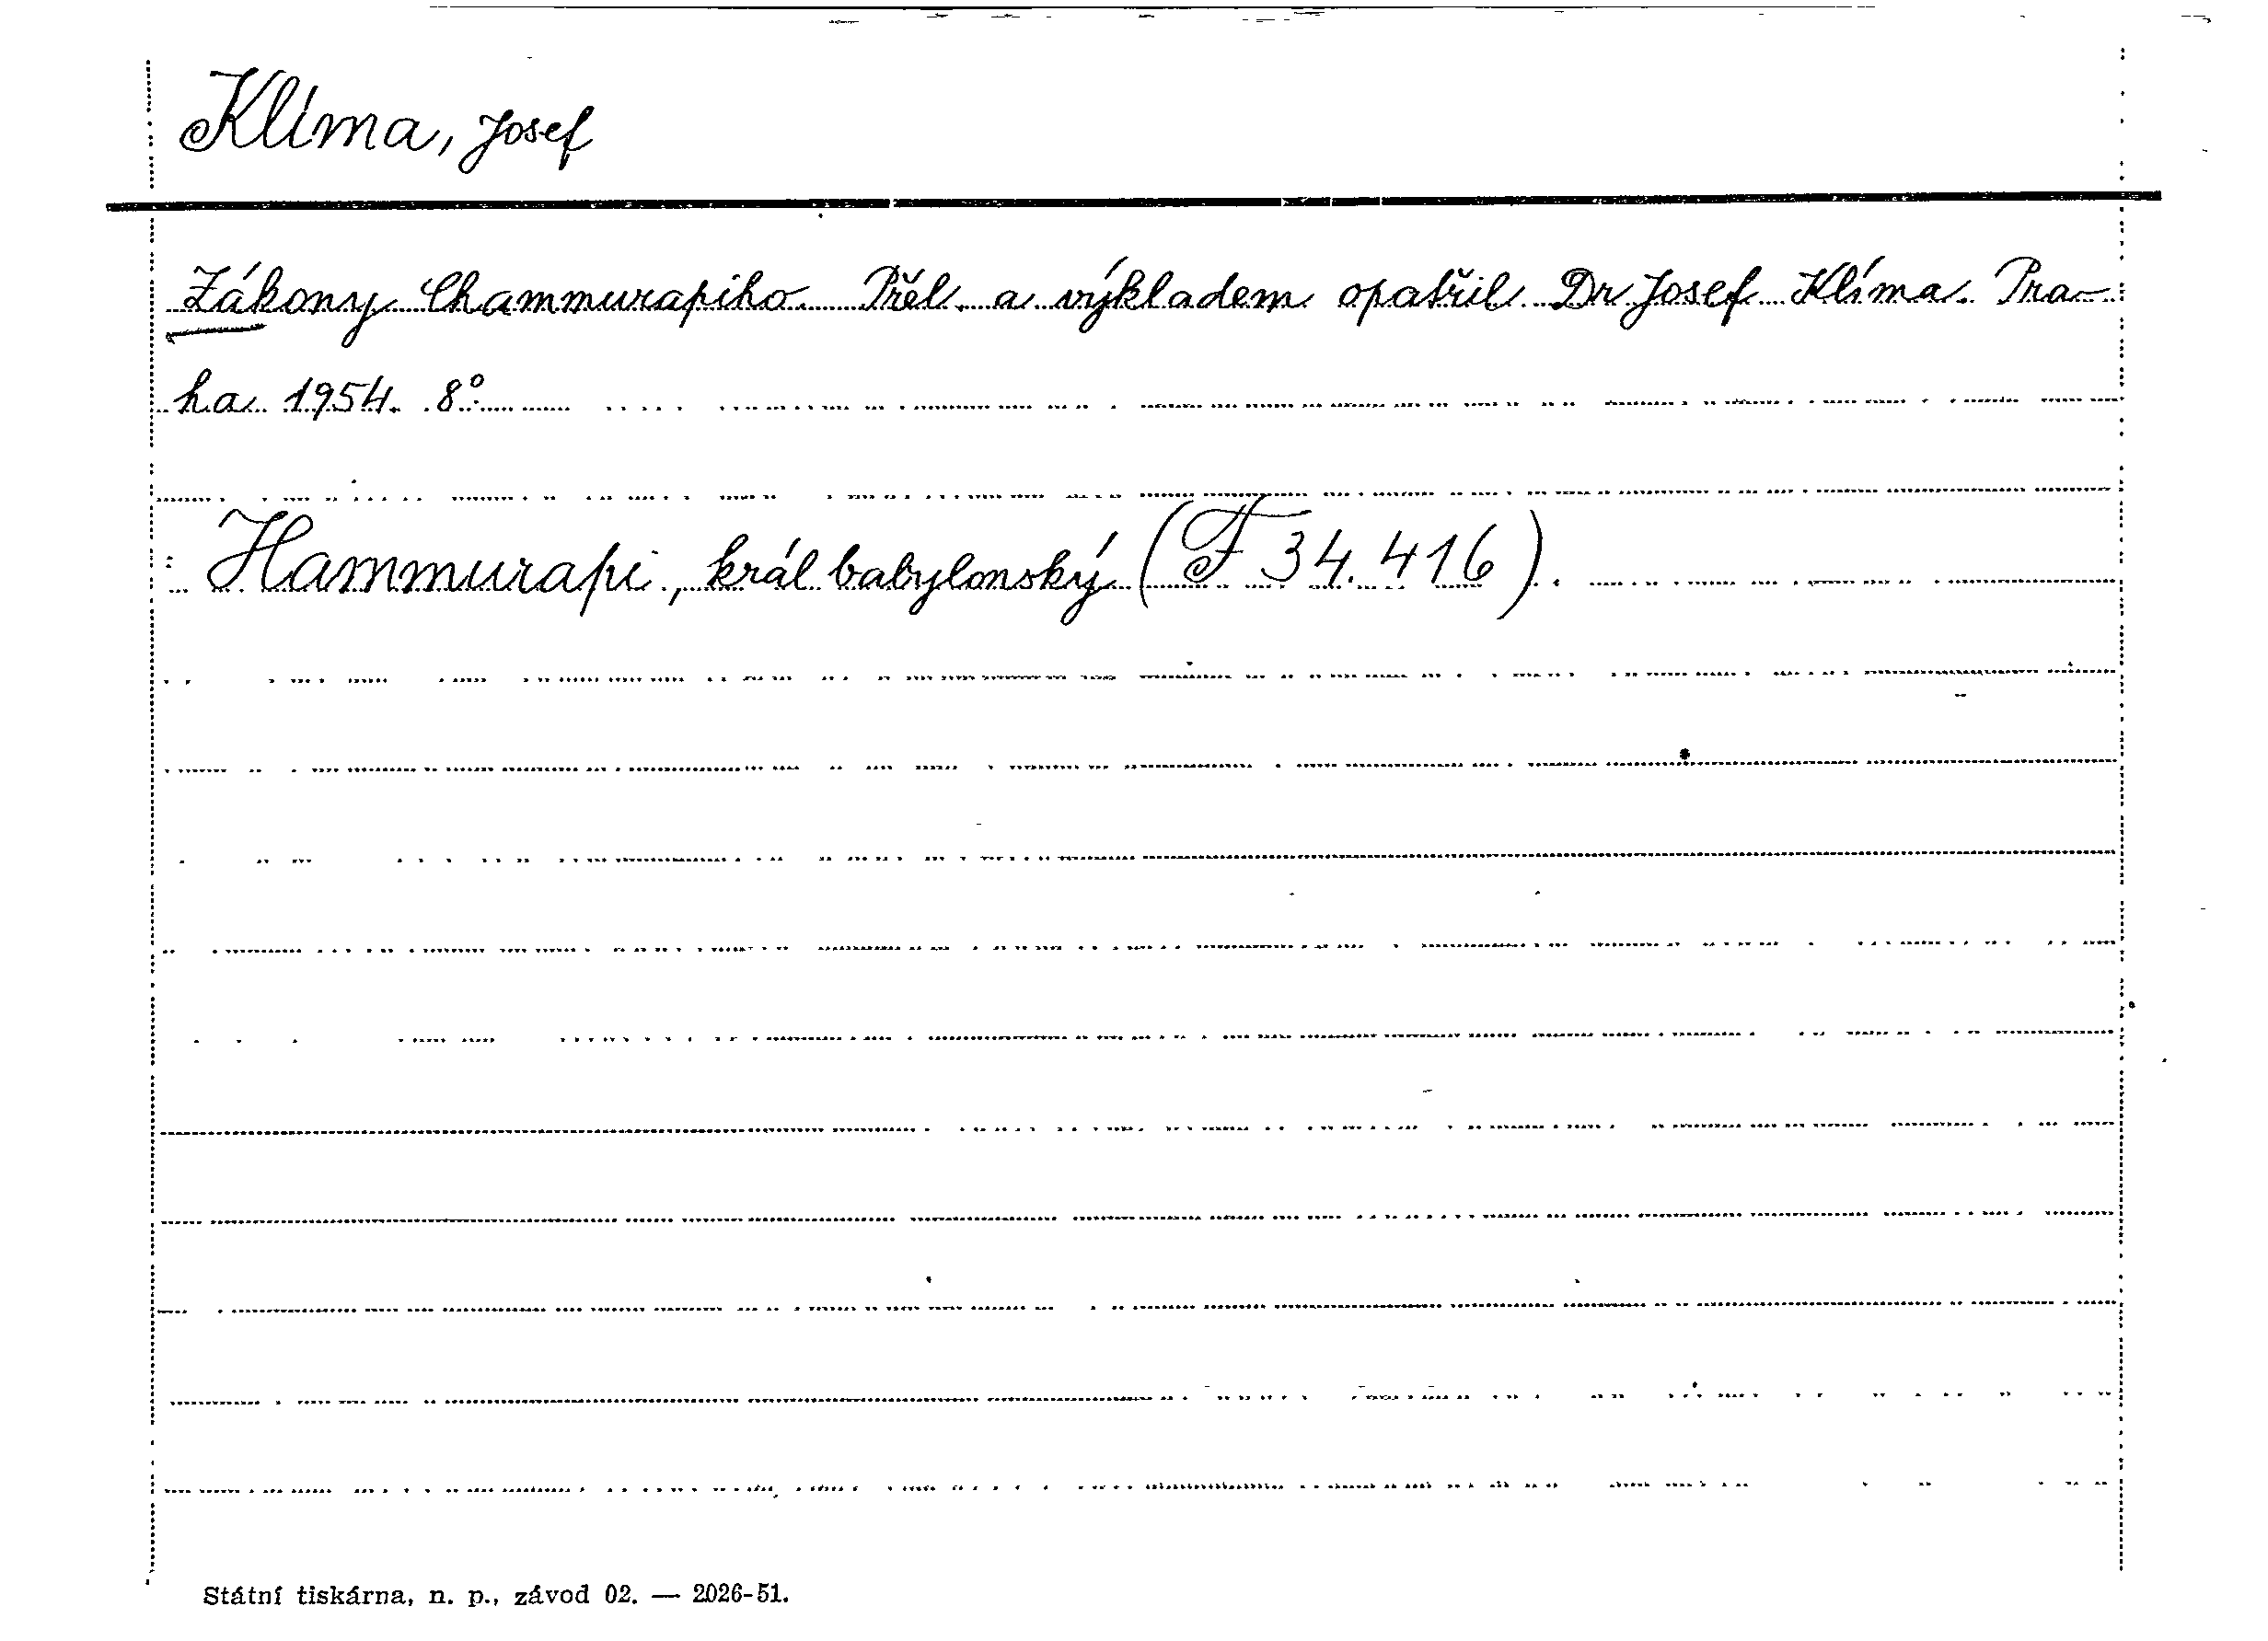 Klíma, Josef
Zákony Chammurapiho. Přel. a výkladem opatřil Dr Josef Klíma. Pra-
ha 1954. 8°
Hammurapi, král babylonský (F 34.416).
Státní tiskárna, n. p., závod 02. — 2026-51.